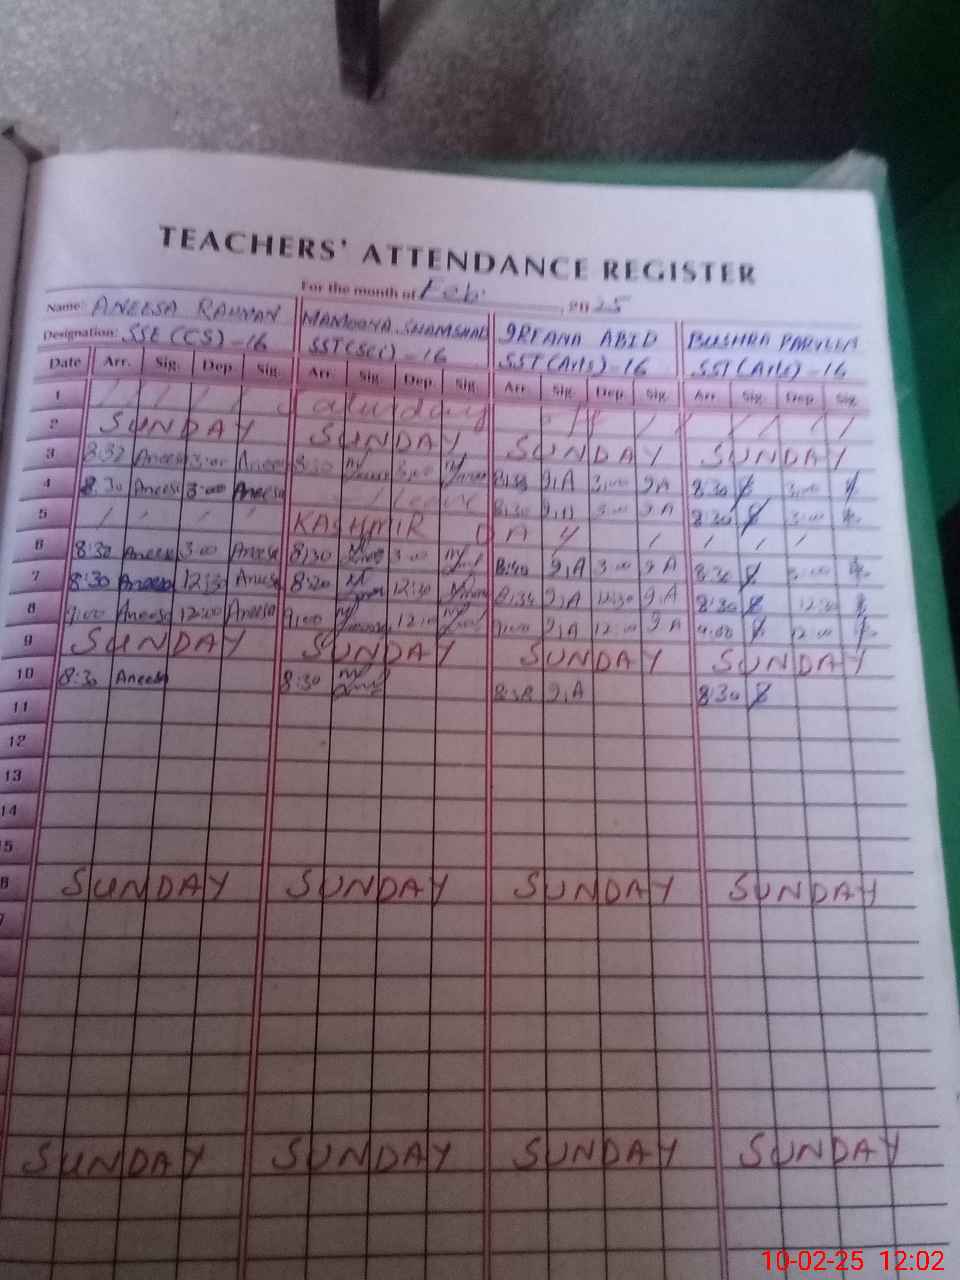 TEACHERS' ATTENDANCE REGISTER
For the month of Feb. , 2025
Name: ANEESA RAHMAN MAMOONA SHAMSHAD IRFANA ABID BUSHRA
Designation: SSE (CS) - 16 SST (Sci) - 16 SST (Arts) - 16 SST (Arts) - 16
Date Arr. Sig. Dep. Sig. Arr. Sig. Dep. Sig. Arr. Sig. Dep. Sig. Arr. Sig. Dep. Sig.
1 / / / / Saturday / / / / / /
2 SUNDAY SUNDAY SUNDAY SUNDAY
3 8:32 Aneesa 3:00 Aneesa 8:30 3:00 I.A 3:00 I.A 8:30 3:00
4 8:30 Aneesa 3:00 Aneesa Leave 8:30 I.A 3:00 I.A 8:30 3:00
5 / / / / KASHMIR DAY / / / /
6 8:30 Aneesa 3:00 Aneesa 8:30 3:00 I.A 3:00 I.A 8:30 3:00
7 8:30 Aneesa 12:30 Aneesa 8:20 12:30 I.A 12:30 I.A 8:30 12:30
8 9:00 Aneesa 12:00 Aneesa 9:00 12:00 9:00 I.A 12:00 I.A 9:00 12:00
9 SUNDAY SUNDAY SUNDAY SUNDAY
10 8:30 Aneesa 8:30 I.A 8:30
11
12
13
14
5
6 SUNDAY SUNDAY SUNDAY SUNDAY
7
SUNDAY SUNDAY SUNDAY SUNDAY
10-02-25 12:02